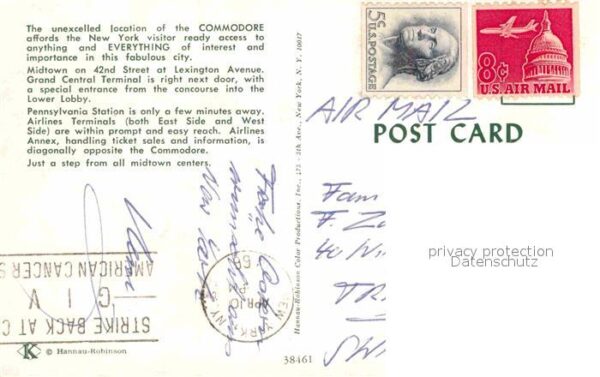 The unexcelled location of the COMMODORE
affords the New York visitor ready access to
anything and EVERYTHING of interest and
importance in this fabulous city.
Midtown on 42nd Street at Lexington Avenue.
Grand Central Terminal is right next door, with
a special entrance from the concourse into the
Lower Lobby.
Pennsylvania Station is only a few minutes away.
Airlines Terminals (both East Side and West
Side) are within prompt and easy reach. Airlines
Annex, handling ticket sales and information, is
diagonally opposite the Commodore.
Just a step from all midtown centers.
STRIKE BACK AT C
GIV
AMERICAN CANCER S
NEW YORK NY
APR 10
K © Hannau-Robinson
Hannau-Robinson Color Productions, Inc., 175 - 5th Ave., New York, N. Y. 10017
38461
5¢
U.S. POSTAGE
8¢
U.S. AIR MAIL
AIR MAIL
POST CARD
Fam
F. Z
40 W
TR
SW
privacy protection
Datenschutz